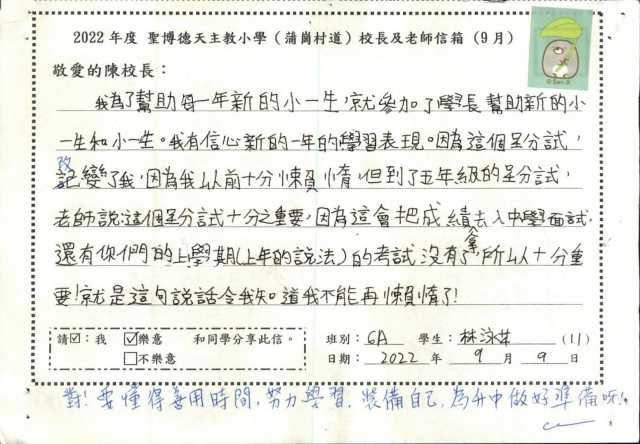 2022 年度 聖博德天主教小學（蒲崗村道）校長及老師信箱（9月）
敬愛的陳校長：
我為了幫助每一年新的小一生，就參加了學長幫助新的小
一生和小一生。我有信心新的一年的學習表現。因為這個呈分試，
改變了我，因為我以前十分懶惰，但到了五年級的呈分試，
老師說這個呈分試十分之重要，因為這會把成績去入中學面試，
還有你們的上學期(上年的說法)的考試沒有了，所以十分重
要!就是這句說話令我知道我不能再懶惰了!
請☑：我 ☑樂意 和同學分享此信。
□不樂意
班別：6A 學生：林泳 (11)
日期：2022 年 9 月 9 日
對！要懂得善用時間，努力學習，裝備自己，為升中做好準備呀！